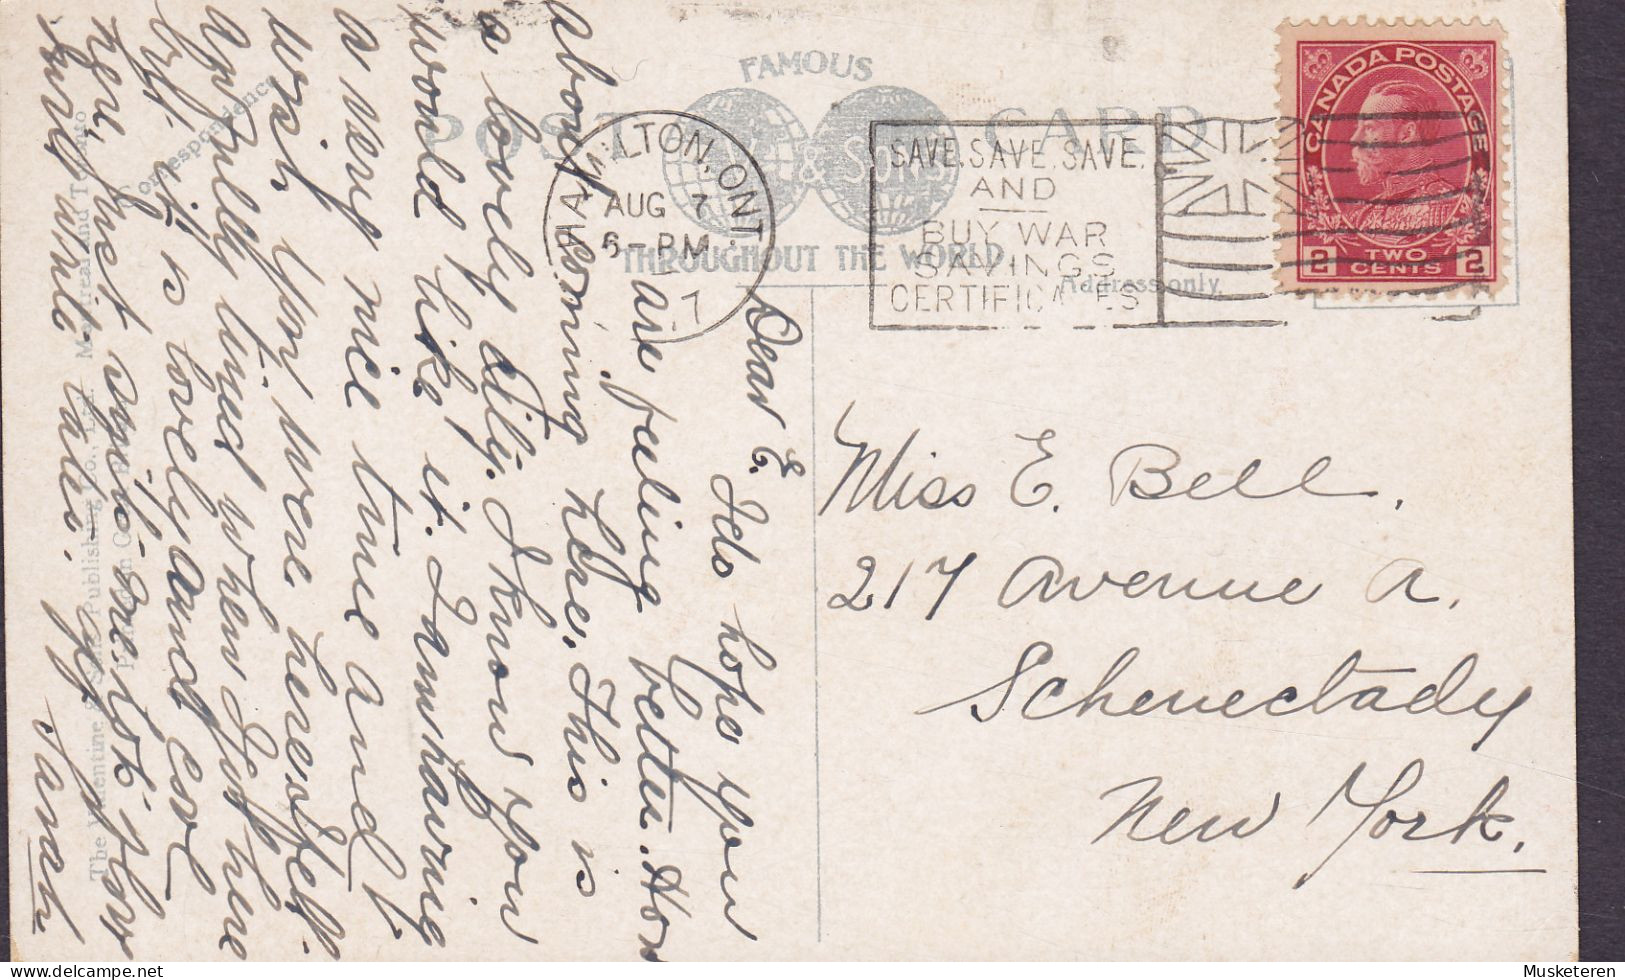 FAMOUS
POST CARD
& SONS
THROUGHOUT THE WORLD
Correspondence
Address only.
HAMILTON, ONT.
AUG 7
6-PM
17
SAVE, SAVE, SAVE,
AND
BUY WAR
SAVINGS
CERTIFICATES
CANADA POSTAGE
2 TWO CENTS 2
Dear E.
I do hope you
are feeling better. How
about coming here. This is
a lovely city. I know you
would like it. I am having
a very nice time and I
wish you were here. I felt
awfully tired when I got here
but it is lovely and cool
here, just write me to
and write later.
Sarah
Miss E. Bell.
217 Avenue A.
Schenectady
New York.
The Valentine & Sons Publishing Co., Ltd. Montreal and Toronto
Musketeren